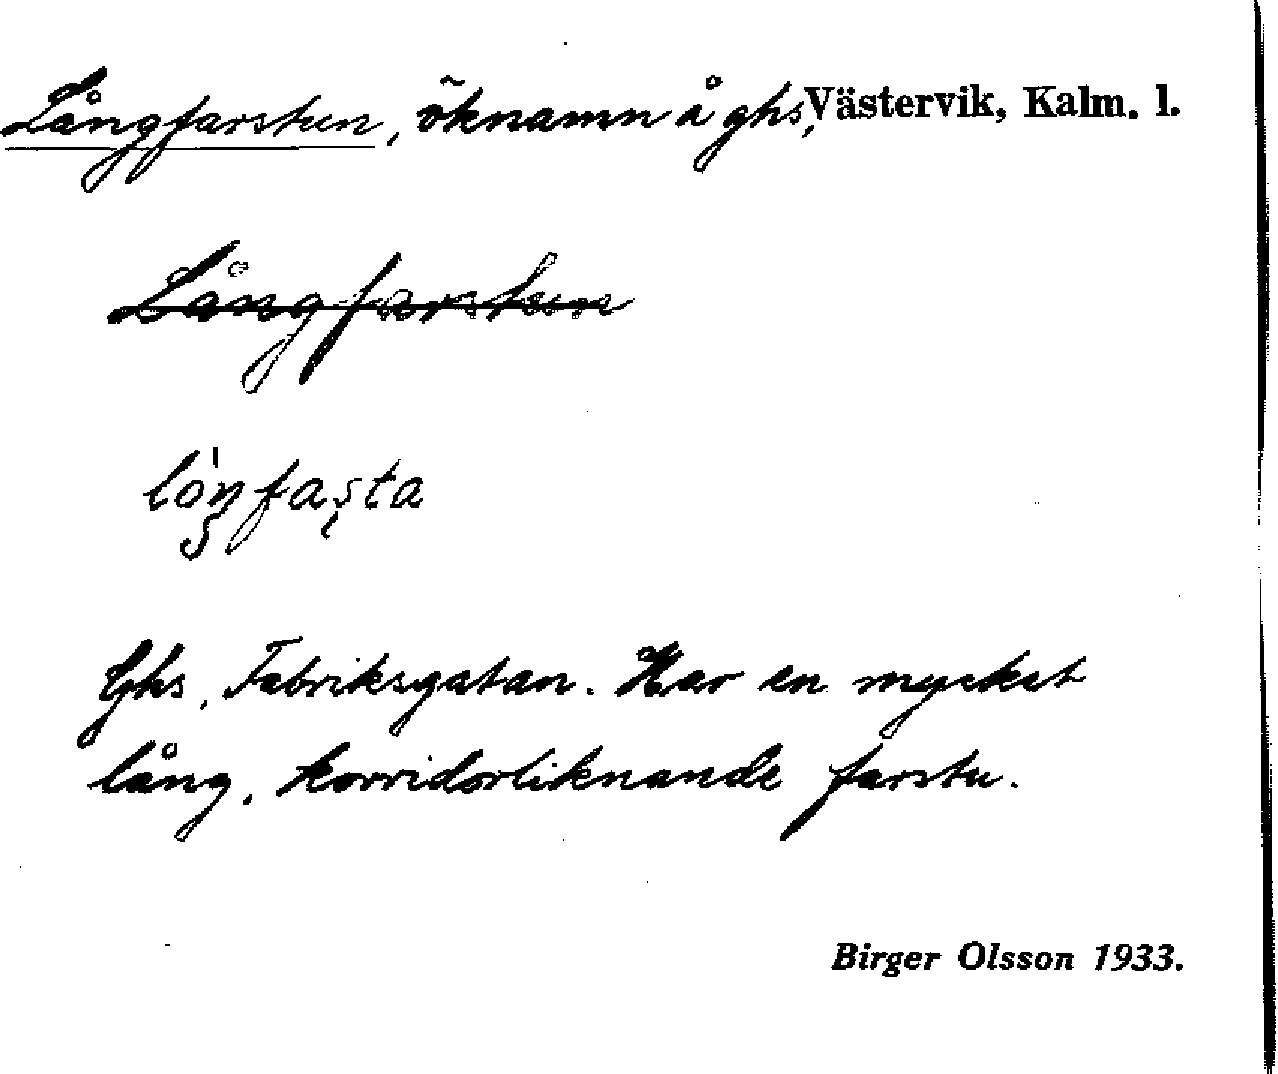 Långfarstun, öknamn å ghs, Västervik, Kalm. l.
Långfarstun
lóŋfaşta
Ghs, Fabriksgatan. Har en mycket
lång, korridorliknande farstu.
Birger Olsson 1933.